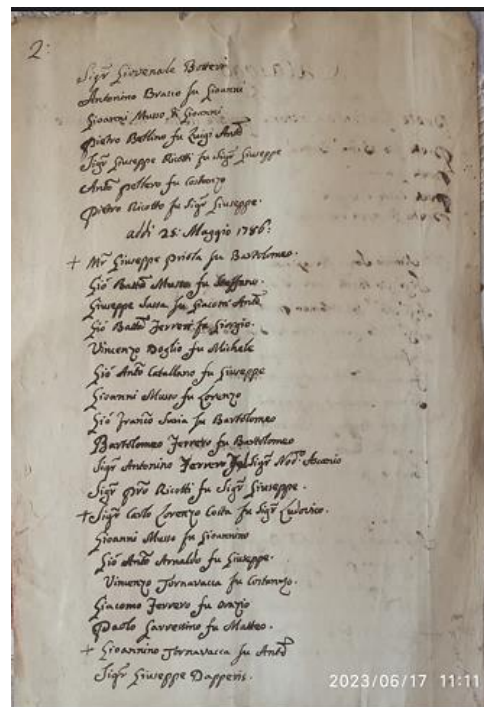 2:
Sigr Giovenale Botteri
Antonino Brasco fu Gioanni
Gioanni Musso di Gioanni
Pietro Bellino fu Luigi Anto
Sigr Giuseppe Ricotti fu Sigr Giuseppe
Anto fu Costanzo
Pietro Ricotto fu Sigr Giuseppe.
addi 28: Maggio 1786:
+ Mr Giuseppe Priola fu Bartolomeo.
Gio Batta Musso fu Steffano.
Giuseppe Sassa fu Giacom Anto
Gio Batta Ferreri fu Giorgio.
Vincenzo Boglio fu Michele
Gio Anto Catallano fu Giuseppe
Gioanni Musso fu Lorenzo
Gio Franco fu Bartolomeo
Bartolomeo Ferrero fu Bartolomeo
Sigr Antonino Ferrero Sigr Nodo Ascanio
Sigr Pro Ricotti fu Sigr Giuseppe.
+ Sigr Carlo Lorenzo Costa fu Sigr Ludovico.
Gioanni Musso fu Gioannino
Gio Anto Arnaldo fu Giuseppe.
Vincenzo Tornavacca fu Costanzo.
Giacomo Ferrero fu Orazio
Paolo fu Matteo.
+ Gioannino Tornavacca fu Anto
Sigr Giuseppe Dapperis.
2023/06/17 11:11